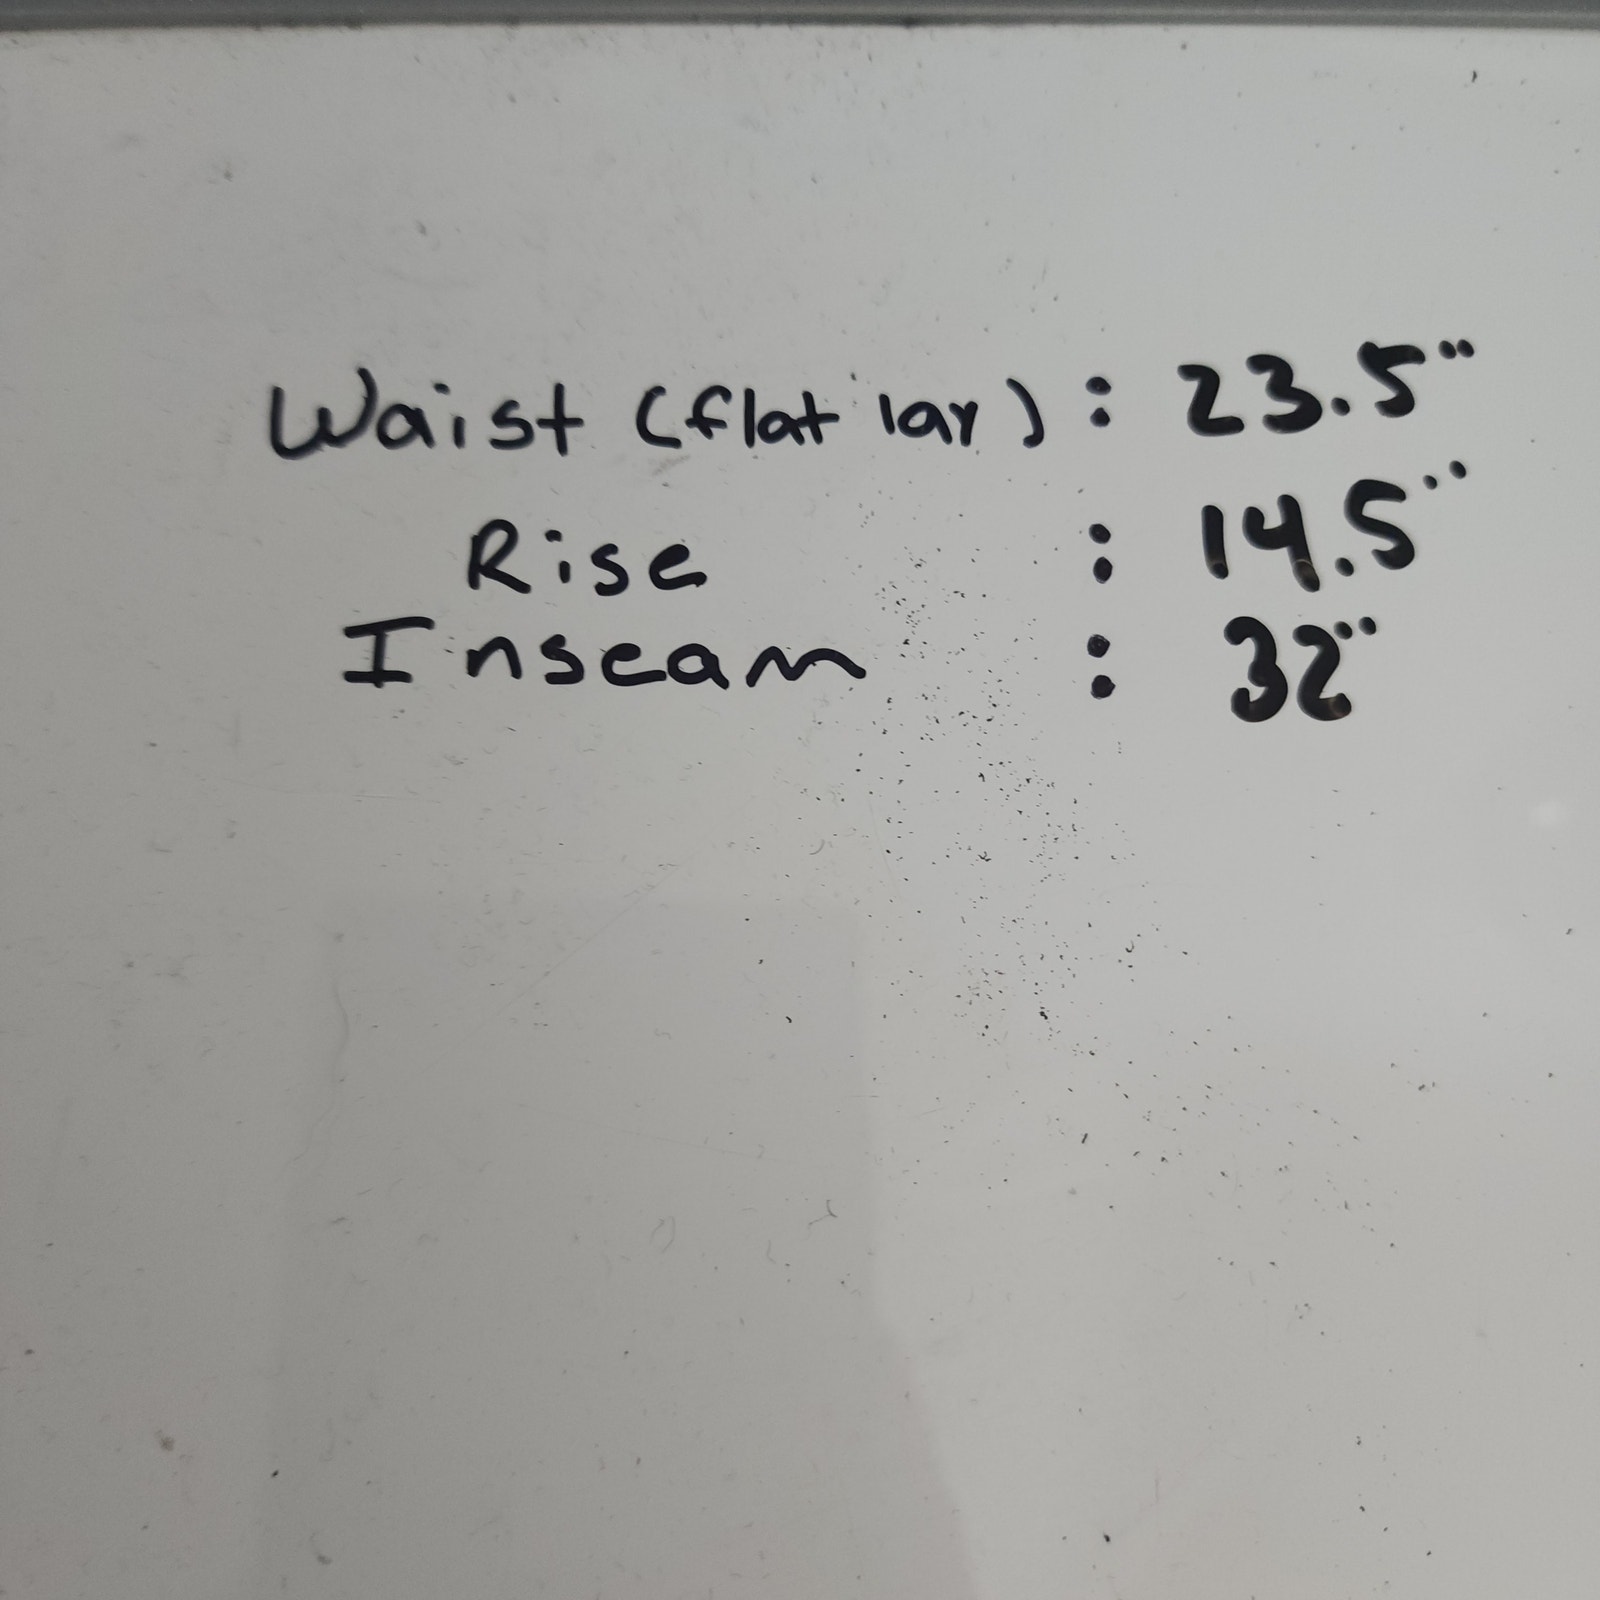 Waist (flat lay) : 23.5"
Rise : 14.5"
Inseam : 32"